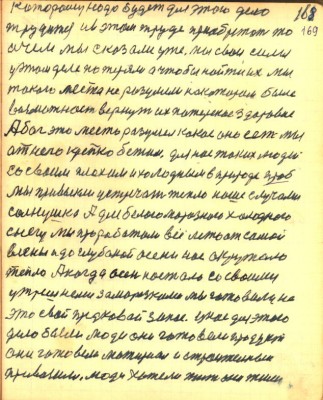 168
которому надо будет для этого дело 169
трудится и в этом труде приобретать то
о чем мы сказали уже, мы свои силы
у этом деле потеряли а чтобы найти их мы
такого места не разумели на котором было
возможност вернут их потерено здоровие
А Бог это место разумел какое оно есть мы
от него крепко бежим, для нас таких людей
со своим плохим и холодным в природе
мы привыкли устречат тепло наше случаям
солнушко А для белого морозного холодного
снегу мы проработали всё лето от самой
весны и до глубокой осени нас окружало
тепло А когда осен настала со своими
утренеми заморозками мы готовили на
это свой прядковой запас. у нас для этого
дело были люди они готовили продукти
они готовели материал и строителный
привозили, люди хотели жит они жили